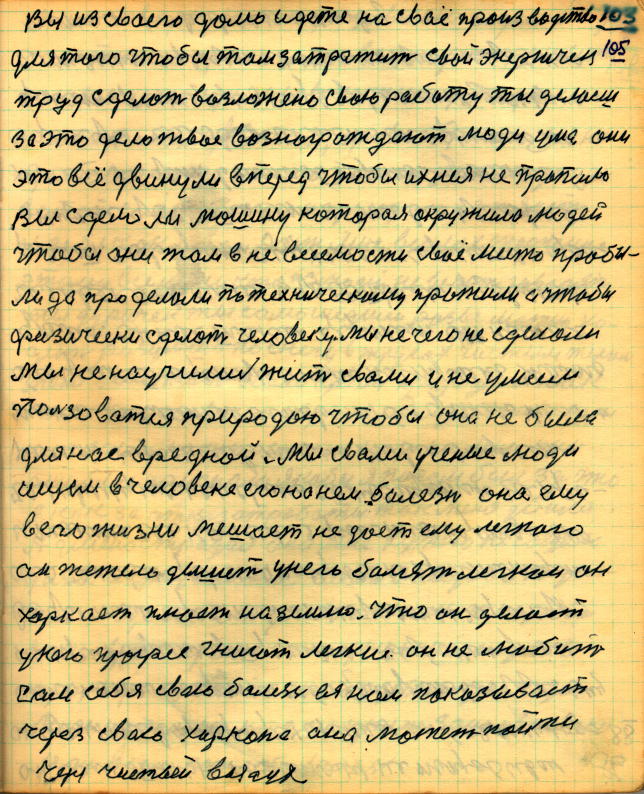 103
Вы из своего дома идете на своё производство
105
для того чтобы там затратит свой энергичен
труд сделат возложено свою работу ты делаеш
за это дело твое вознаграждают люди ума они
это всё двинули вперед чтобы ихнея не пропало
Вы сделали машину которая окружила людей
чтобы они там в не весемости своё место пробы-
ли да проделали по техническому прожили а чтобы
физически сделат человеку мы нечего не сделали
мы не научили жит свами и не умеем
ползоватся природою чтобы она не была
для нас вредной. мы свами ученые люди
ищем в человеке его на нем болезн она ему
в его жизни мешает не дает ему легкого
он тежело дышет унего болят легкои он
харкает плюет на землю. Что он делает
укого гниют легкии он не любит
сам себя свою болезн ея нам показывает
через свою она может пойти
через чистый